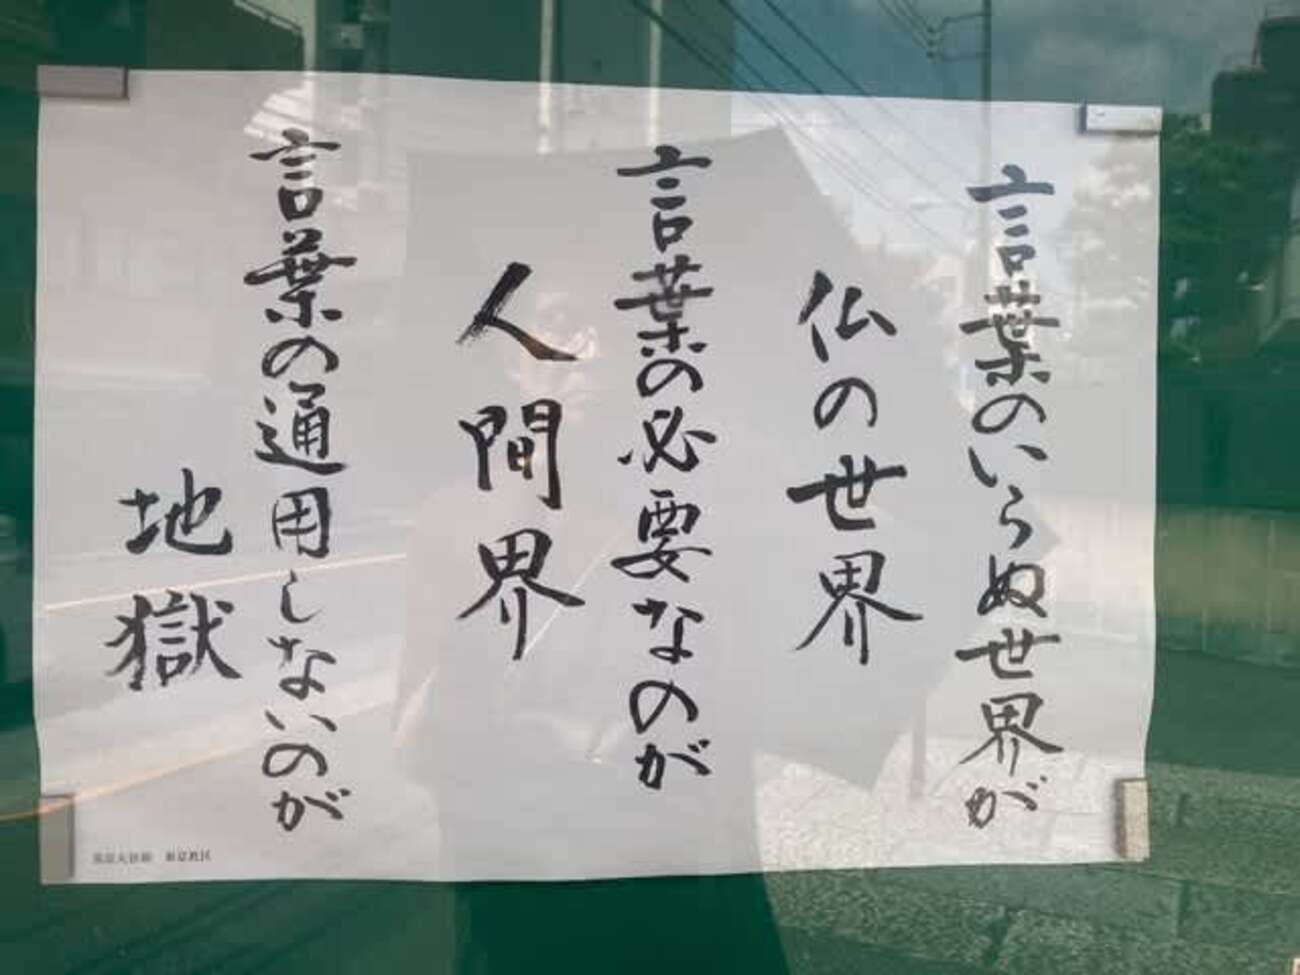 言葉のいらぬ世界が
仏の世界
言葉の必要なのが
人間界
言葉の通用しないのが
地獄